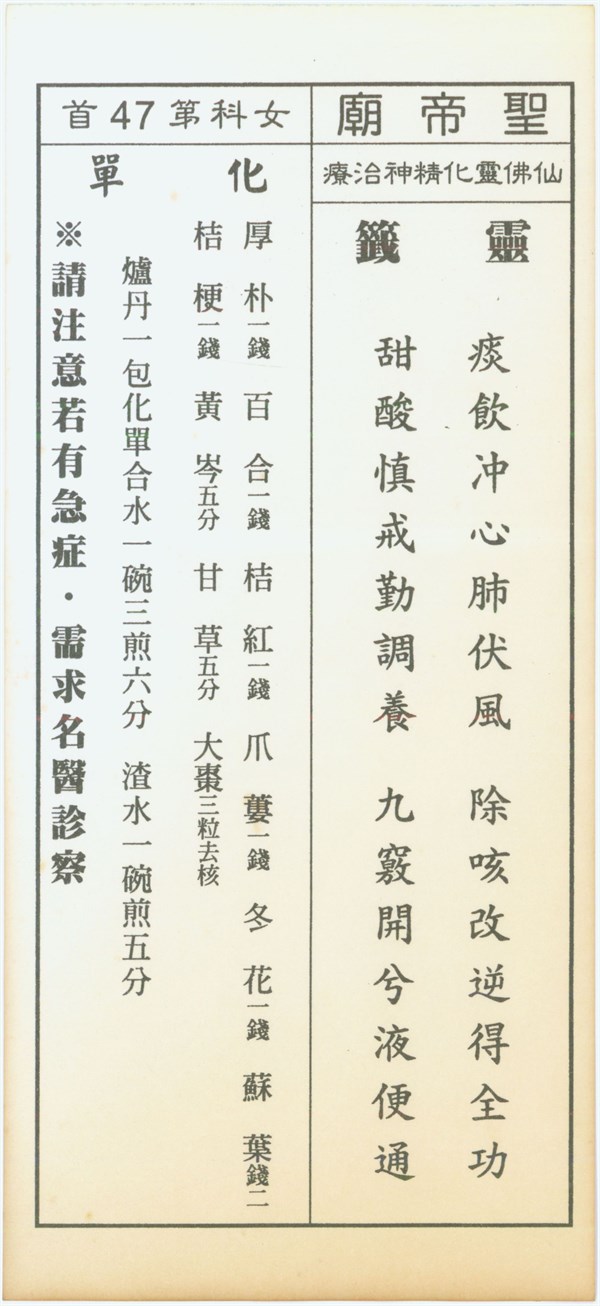 聖帝廟
仙佛靈化精神治療
靈籤
痰飲沖心肺伏風 除咳改逆得全功
甜酸慎戒勤調養 九竅開兮液便通
女科第47首
化單
厚朴一錢 百合一錢 桔紅一錢 爪蔞一錢 冬花一錢 蘇葉錢二
桔梗一錢 黃岑五分 甘草五分 大棗三粒去核
爐丹一包化單合水一碗三煎六分 渣水一碗煎五分
※請注意若有急症・需求名醫診察